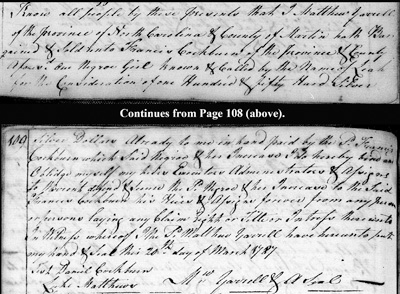 Know all people by these presents that I Matthew Yarrell
of the province of North Carolina & County of Martin hath Bar
gained & Sold unto Francis Cockburn of the province & County
one Negro Girl known & Called by the Name of Leah
for the Consideration of one Hundred & fifty Hard Silver
Continues from Page 108 (above).
109 Silver Dollars Already to me in hand paid by the Sd Francis
Cockburn which Said Negroe & her Increase I do hereby bind and
Oblidge myself my heirs Executors Administrators & Assigns
to Warrant & the Sd Negroe & her Increase to the Said
Francis Cockburn his Heirs & Assigns forever from any person
or persons laying any Claim Right or Title or Intrest thereunto
In Witness whereof I the Sd Matthew Yarrell have hereunto sett
my hand & Seal this 20th day of March 1787
Test Daniel Cockburn
Luke Matthews Mw Yarrell & a Seal